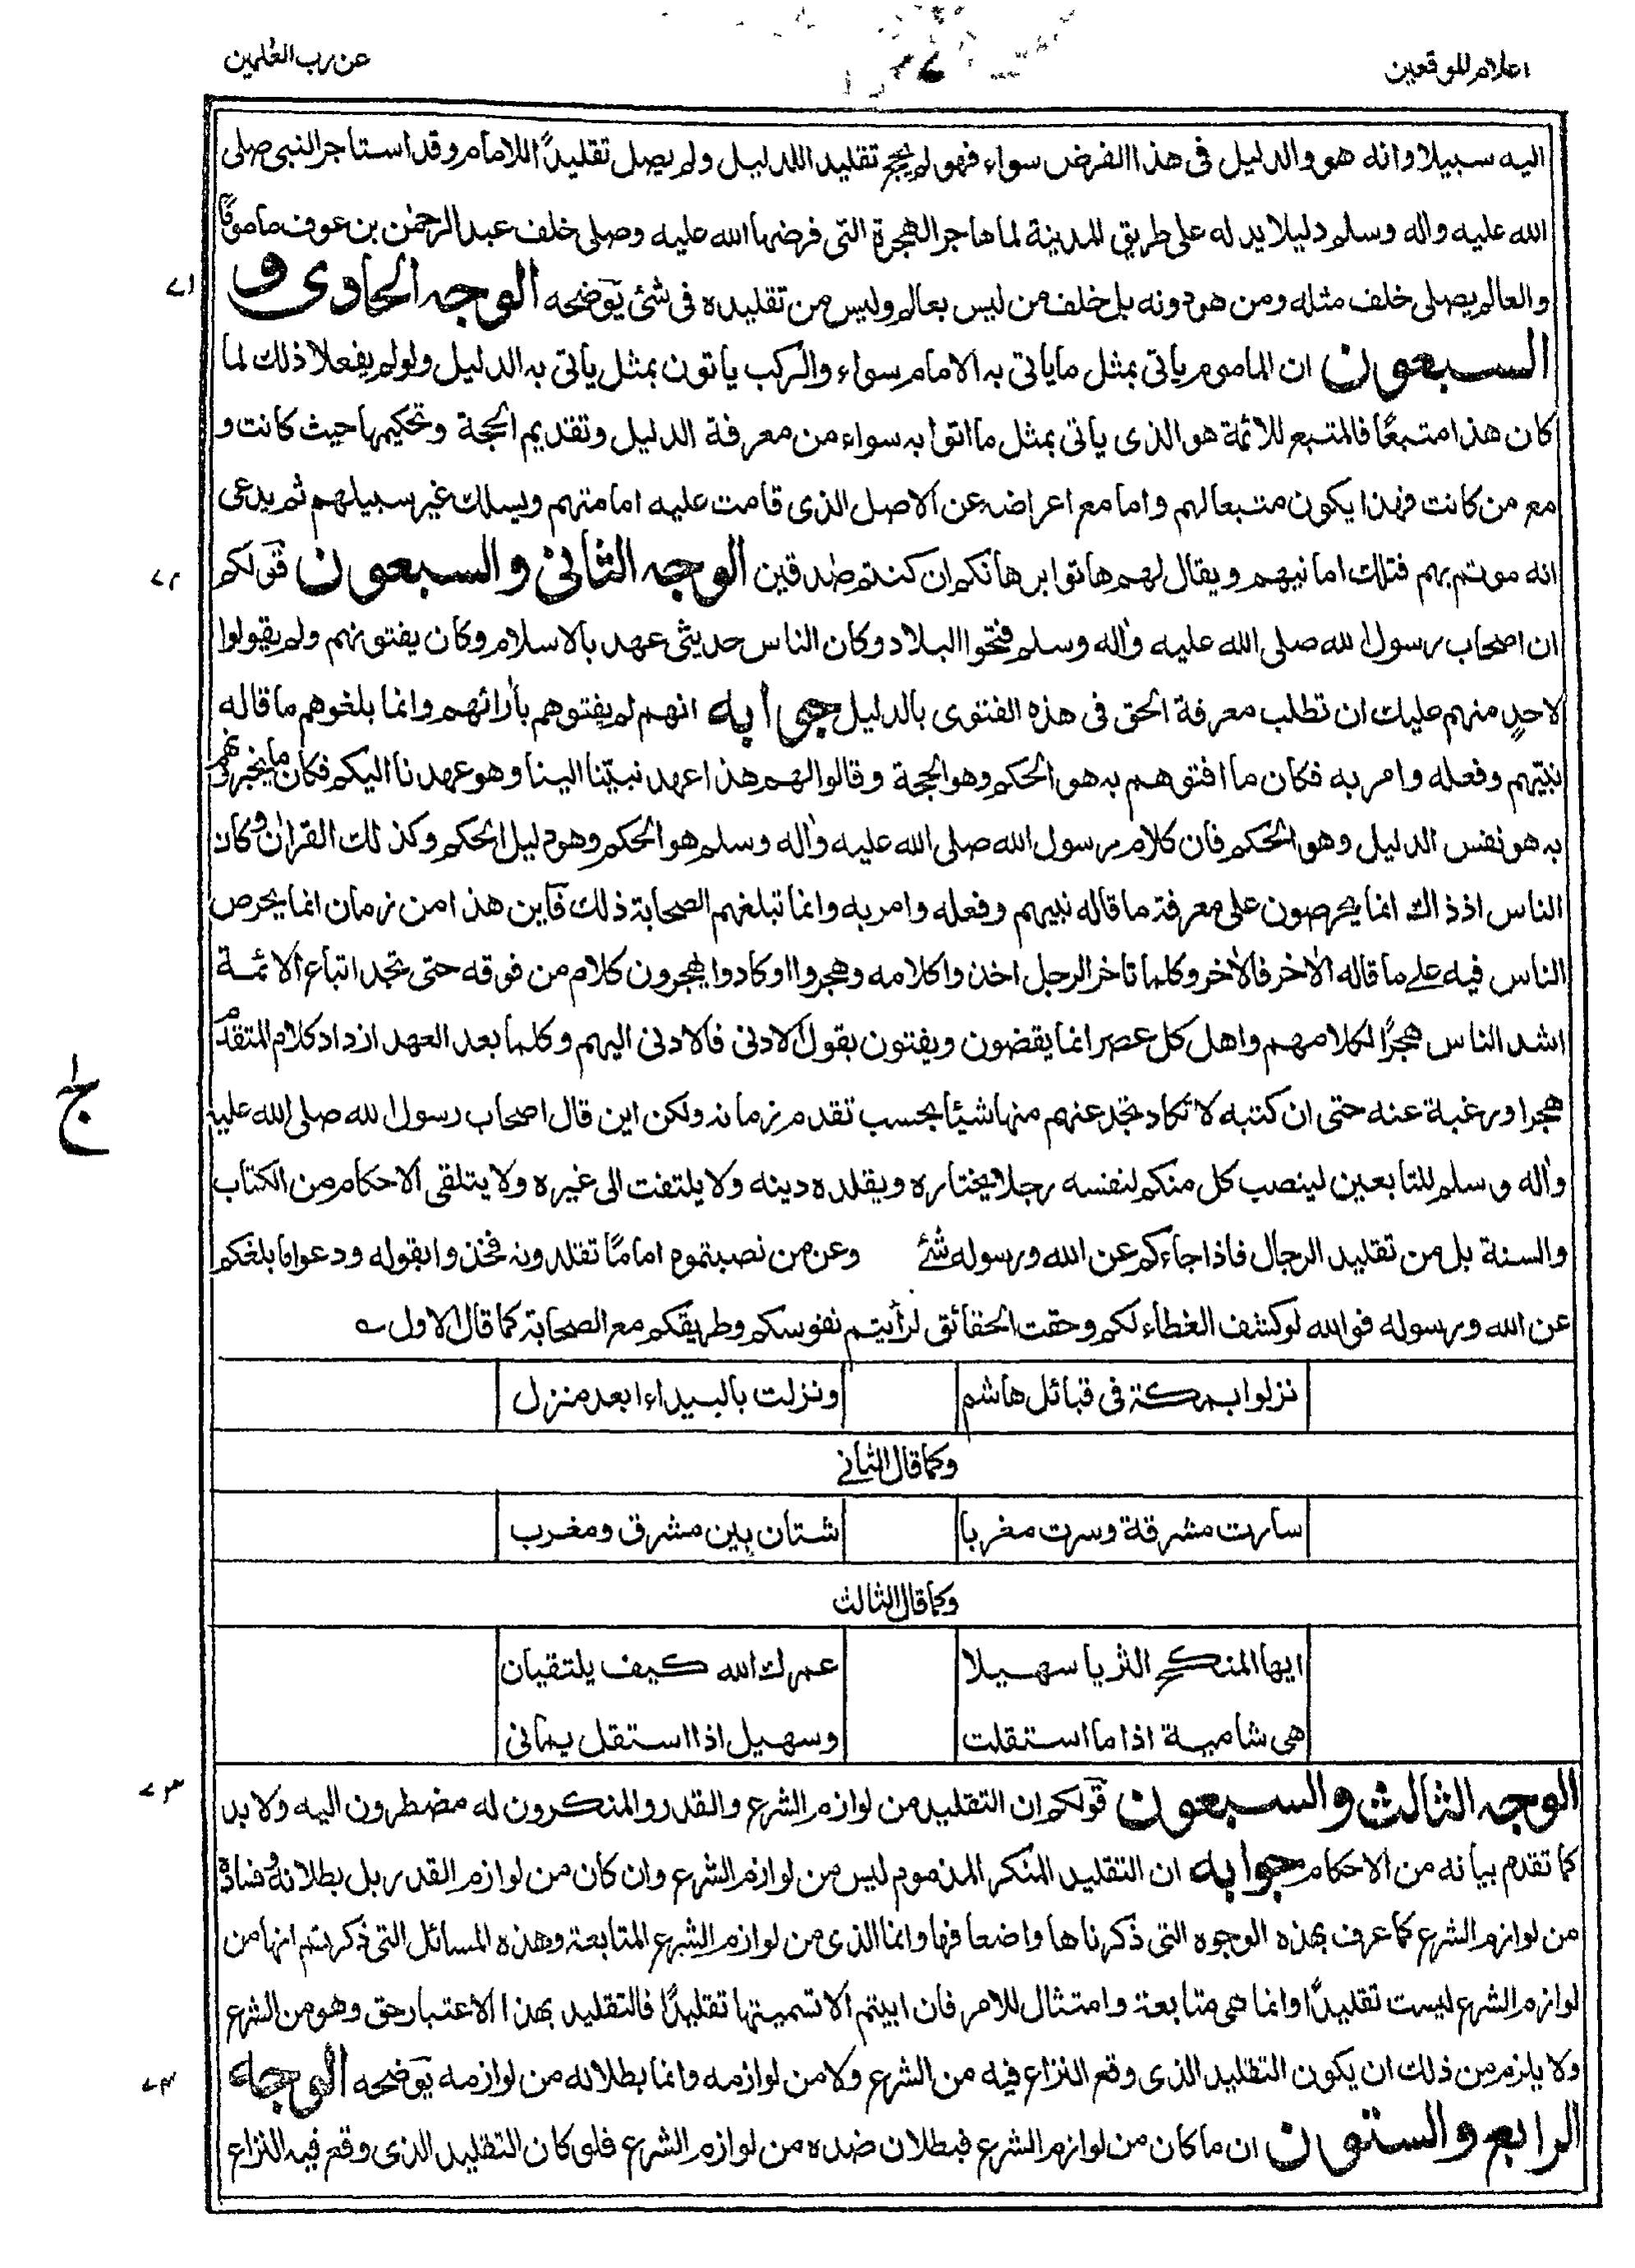 اعلام الموقعين
عن رب العٰلمين
اليه سبيلا وانه هو والدليل فى هذا الفرض سواء فهو لم يجز تقليد الدليل ولم يصل تقليدًا للامام وقد استاجر النبى صلى
الله عليه واٰله وسلم دليلا يدله على طريق المدينة لما هاجر الهجرة التى فرضها الله عليه وصلى خلف عبد الرحمٰن بن عوف ماموما
والعالم يصلى خلف مثله ومن هو دونه بل خلف من ليس بعالم وليس من تقليده فى شئ يوضحه الوجه الحادى و
۷۱
السبعون ان الماموم ياتى بمثل ما ياتى به الامام سواء والركب ياتون بمثل ياتى به الدليل ولو لم يفعلا ذلك لما
كان هذا متبعًا فالمتبع للائمة هو الذى ياتى بمثل ما اتوا به سواء من معرفة الدليل وتقديم الحجة وتحكيمها حيث كانت و
مع من كانت فهذا يكون متبعا لهم واما مع اعراضه عن الاصل الذى قامت عليه امامتهم ويسلك غير سبيلهم ثم يدعى
انه موتم بهم فتلك امانيهم ويقال لهم هاتوا برهانكم ان كنتم صٰدقين الوجه الثانى والسبعون قولكم
۷۲
ان اصحاب رسول الله صلى الله عليه واٰله وسلم فتحوا البلاد وكان الناس حديثى عهد بالاسلام وكان يفتونهم ولم يقولوا
لاحدٍ منهم عليك ان تطلب معرفة الحق فى هذه الفتوى بالدليل جوابه انهم لم يفتوهم بآرائهم وانما بلغوهم ما قاله
نبيهم وفعله وامر به فكان ما افتوهم به هو الحكم وهو الحجة وقالوا لهم هذا عهد نبيّنا الينا وهو عهدنا اليكم فكان ما يخبرونهم
به هو نفس الدليل وهو الحكم فان كلام رسول الله صلى الله عليه واٰله وسلم هو الحكم وهو دليل الحكم وكذلك القراٰن وكان
الناس اذ ذاك انما يحرصون على معرفة ما قاله نبيهم وفعله وامر به وانما تبلغهم الصحابة ذلك فاين هذا من زمان انما يحرص
الناس فيه على ما قاله الاٰخر فالاٰخر وكلما تاخر الرجل اخذوا كلامه وهجروا او كادوا يهجرون كلام من فوقه حتى تجد اتباع الائمة
اشد الناس هجرًا لكلامهم واهل كل عصر انما يقضون ويفتون بقول الادنى فالادنى اليهم وكلما بعد العهد ازداد كلام المتقدم
هجرا ورغبة عنه حتى ان كتبه لا تكاد تجد عنهم منها شيئا بحسب تقدم زمانه ولكن اين قال اصحاب رسول الله صلى الله عليه
واٰله وسلم للتابعين لينصب كل منكم لنفسه رجلا يختاره ويقلده دينه ولا يلتفت الى غيره ولا يتلقى الاحكام من الكتاب
والسنة بل من تقليد الرجال فاذا جاءكم عن الله ورسوله شئ وعن من نصبتموه امامًا تقلدونه فخذوا بقوله ودعوا ما بلغكم
عن الله ورسوله فوالله لو كشف الغطاء لكم وحقت الحقائق لرأيتم نفوسكم وطريقكم مع الصحابة كما قال الاول
نزلوا بمكة فى قبائل هاشم ونزلت بالبيداء ابعد منزل
وكما قال الثانى
سارت مشرقة وسرت مغربا شتان بين مشرق ومغرب
وكما قال الثالث
ايها المنكح الثريا سهيلا عمرك الله كيف يلتقيان
هى شامية اذا ما استقلت وسهيل اذا استقل يمانى
الوجه الثالث والسبعون قولكم ان التقليد من لوازم الشرع والقدر والمنكرون له مضطرون اليه ولا بد
۷۳
كما تقدم بيانه من الاحكام جوابه ان التقليد المنكر المذموم ليس من لوازم الشرع وان كان من لوازم القدر بل بطلانه وفساده
من لوازم الشرع كما عرف بهذه الوجوه التى ذكرناها واضعافها وانما الذى من لوازم الشرع المتابعة وهذه المسائل التى ذكرتم انها من
لوازم الشرع ليست تقليدًا وانما هى متابعة وامتثال للامر فان ابيتم الا تسميتها تقليدًا فالتقليد بهذا الاعتبار حق وهو من الشرع
ولا يلزم من ذلك ان يكون التقليد الذى وقع النزاع فيه من الشرع ولا من لوازمه وانما بطلانه من لوازمه يوضحه الوجه
۷۴
الرابع والستون ان ما كان من لوازم الشرع فبطلان ضده من لوازم الشرع فلو كان التقليد الذى وقع فيه النزاع